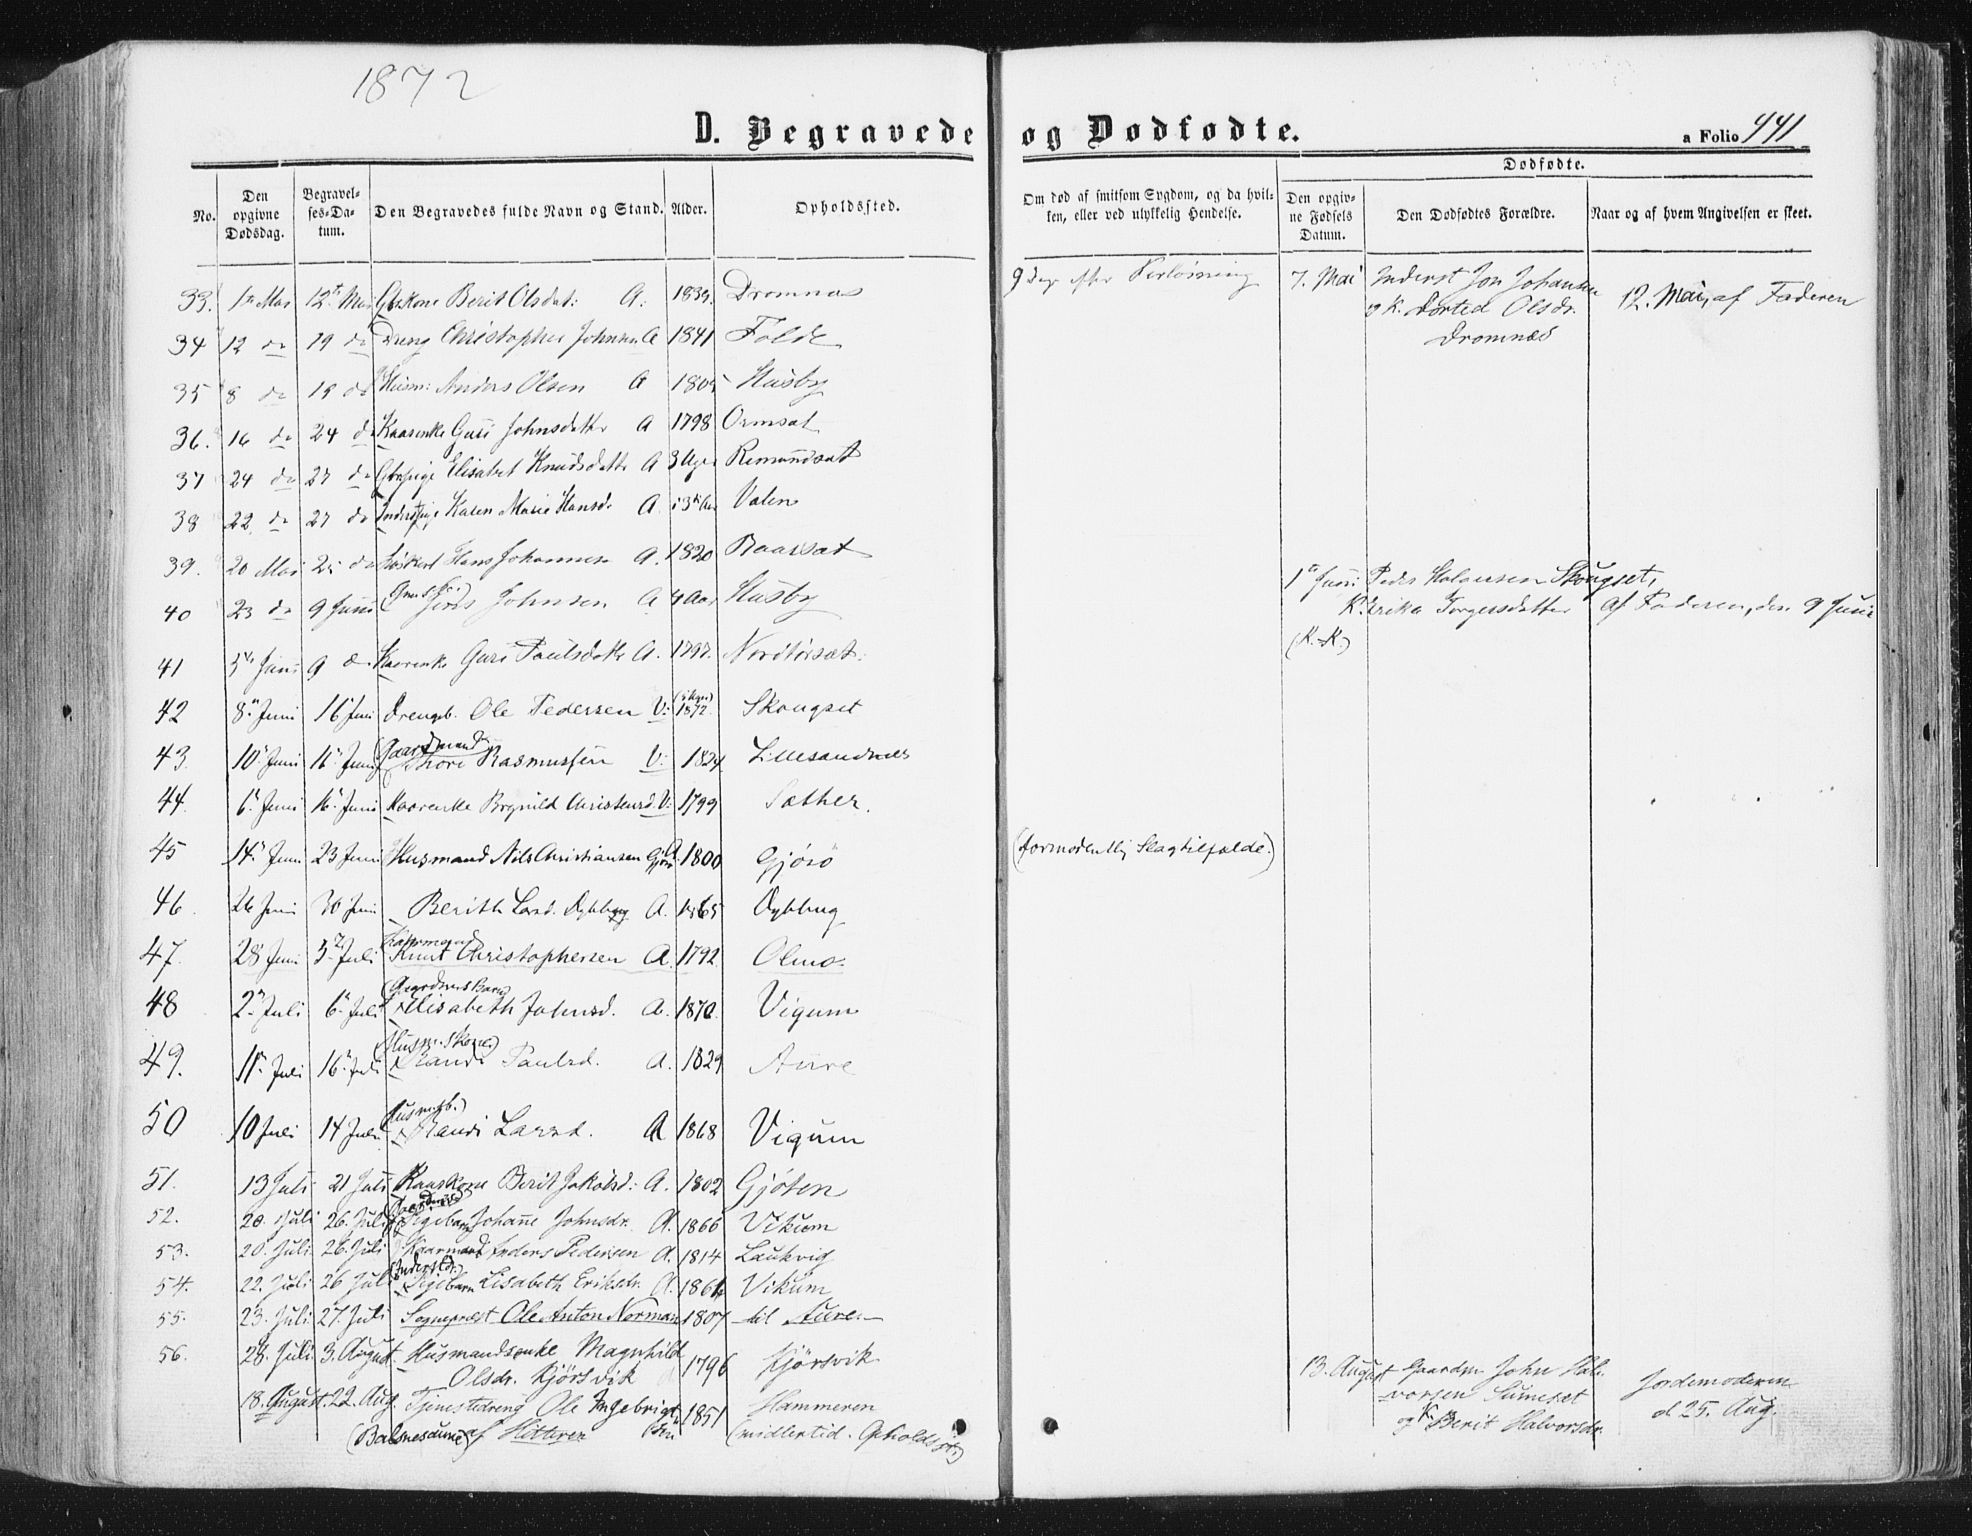 1872
D. Begravede og Dødfødte.
a Folio 441
Dødfødte.
No.
Den opgivne Dødsdag.
Begravelses-Datum.
Den Begravedes fulde Navn og Stand.
Alder.
Opholdssted.
Om død af smitsom Sygdom, og da hvilken, eller ved ulykkelig Hendelse.
Den opgivne Fødsels Datum.
Den Dødfødtes Forældre.
Naar og af hvem Angivelsen er skeet.
33. 12 Mai Berit Olsdat: A. 1839 Dromnæs 9 Dage efter Forløsning 7. Mai Inderst Jon Johansen
og K. Dorted Olsdr. 12. Mai, af Faderen
Dromnæs
34 12 do 19 do Dreng Christopher Johnsen A 1841 Folde
35 8 do 19 do Husm: Anders Olsen A 1805 Husby
36. 16 do 24 do Kaarenke Guri Johnsdatter A 1798 Ormsæt
37 24 do 27 do Elisabet Knudsdatter A 3 Uger Rimmandsæt
38 22 do 27 do Karen Marie Hansd. A. Valen
39. 20 Mai 25 do Hans Johannesen A. 1820 Baarsæt
1 Juni Peder Halvorsen Skougset,
40 23 do 9 Juni Jens Johnsen A 4 Aar Husby
K. Erika Torgersdatter af Faderen, den 9 Juni
(K.-K.)
41 5 Juni 9 do Kaarenke Guri Paulsdatter A. 1797. Nordtørsæt
42 8 Juni 16 Juni Drengb. Ole Pedersen V: 1872 Skougset
43. 10 Juni 16 Juni (Gaardmand) Thore Rasmussen V: 1824 Lillesandnes
44. 6 Juni 16 Juni Kaarenke Brynild Christensd. V: 1799 Sæther.
45 14 Juni 23 Juni Husmand Nils Christiansen Gjøsø A. 1800 Gjøsø (formodentlig Slagtilfælde.)
46. 26 Juni 30 Juni Berith Larsd. Dybbug A. 1865 Dybbug
47. 28 Juni 5 Juli Kaarmand Knut Christophersen A. 1792 Olmo.
48 2 Juli 6 Juli (Gaardms Barn) Elisabeth Johnsd. A. 1870. Vigum
49. 11 Juli 16 Juli (Husm.skone) Randi Paulsd. A. 1829 Aure
50 10 Juli 14 Juli Husmdb.) Randi Larsd. A 1868 Vigum
51. 13 Juli 21 Juli Kaarkone Berit Jakobsd: A. 1802 Gjøten
52. 20. Juli 26. Juli Pigebarn Johanne Johnsdr. A. 1866 Vikum
53. 20. Juli 26. Juli Kaarmand Anders Pedersen A. 1814 Laukvig
54. 22. Juli 26 Juli Pigebarn Lisabeth Eriksdr. A. 1864 Vikum
55. 23. Juli 27. Juli Sogneprest Ole Anton Norman 1807 til Aure.
56. 28. Juli 3. August. Husmandsenke Magnhild Olsdr. Kjørsvik 1796 Kjørsvik
13. August Gaardm. John Hal-
vorsen Sumesæt
og K. Berit Halvorsdr.
Jordemoderen
d. 25. Aug.
18. August. 22. Aug. Tjenestedreng Ole Ingebrigtsen 1851 Hammeren
(Balsnesaune) af Hitteren (midlertid. Opholdsst.)